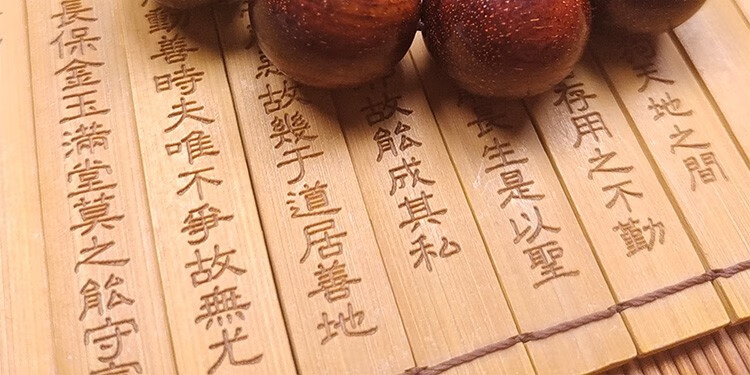 天地之間
存用之不勤
長生是以聖
故能成其私
惡故幾于道居善地
動善時夫唯不爭故無尤
長保金玉滿堂莫之能守